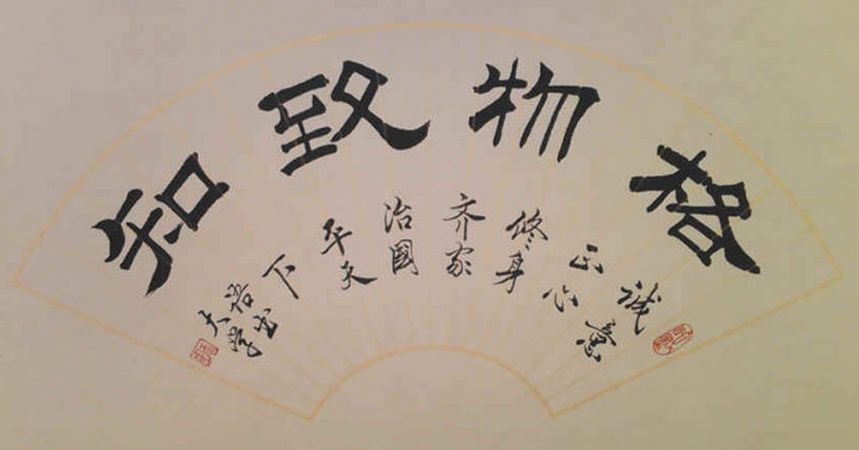 格物致知
诚意
正心
修身
齐家
治國
平天
下
语出
大学